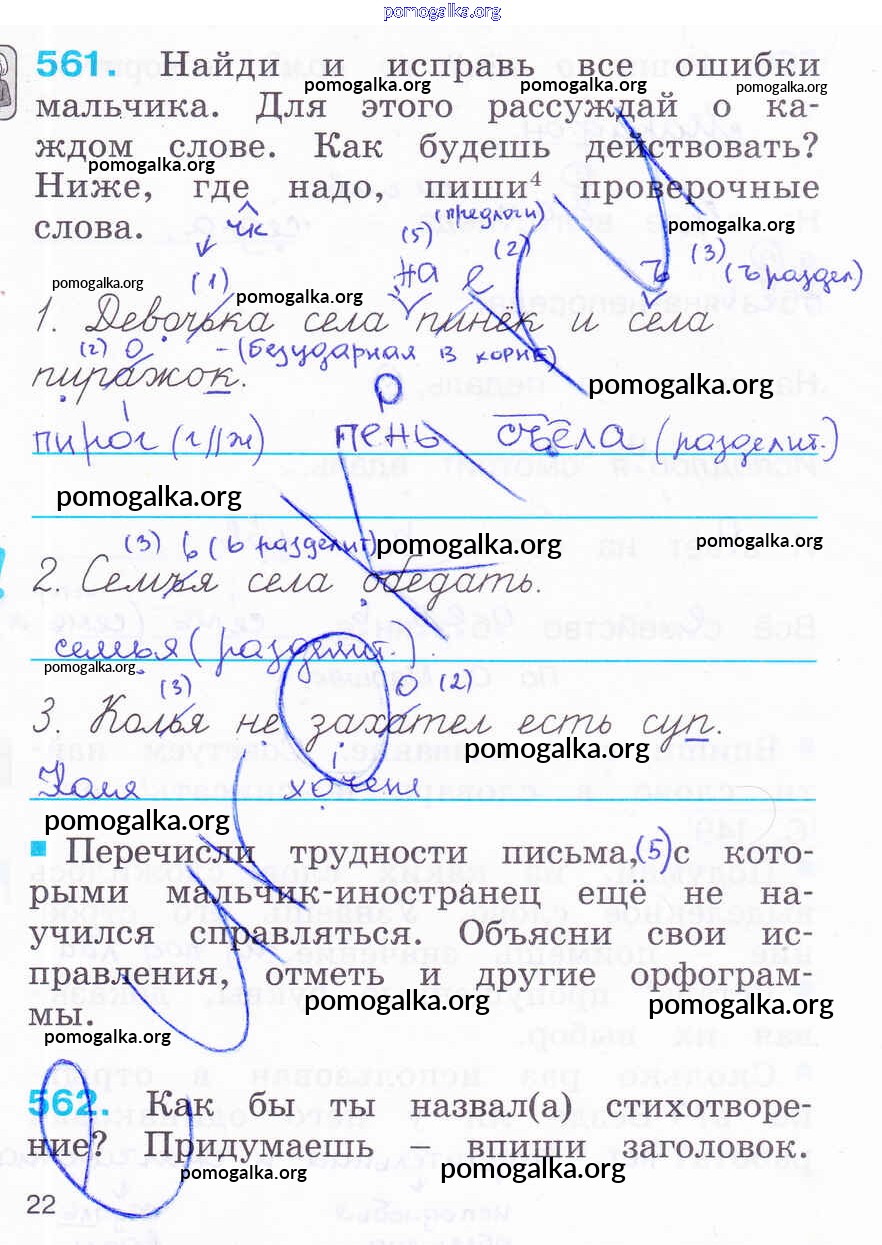 pomogalka.org
561. Найди и исправь все ошибки
pomogalka.org pomogalka.org pomogalka.org
мальчика. Для этого рассуждай о ка-
ждом слове. Как будешь действовать?
pomogalka.org
Ниже, где надо, пиши⁴ проверочные
слова. чк (5) (предлоги) pomogalka.org
(1) на е (2) ъ (3) (ъ раздел)
pomogalka.org pomogalka.org
1. Девочька села пинёк и села
(2) о - (безударная в корне)
пиражок. pomogalka.org
пирог (г//ж) пень съела (разделит.)
pomogalka.org
(3) ь (ь разделит) pomogalka.org pomogalka.org
2. Семъя села обедать.
семья (разделит.).
pomogalka.org
(3) о (2)
3. Колья не захател есть суп.
pomogalka.org
Коля хочет
pomogalka.org
Перечисли трудности письма, (5) с кото-
рыми мальчик-иностранец ещё не на-
учился справляться. Объясни свои ис-
правления, отметь и другие орфограм-
pomogalka.org pomogalka.org
мы.
pomogalka.org
562. Как бы ты назвал(а) стихотворе-
ние? Придумаешь – впиши заголовок.
pomogalka.org pomogalka.org
22